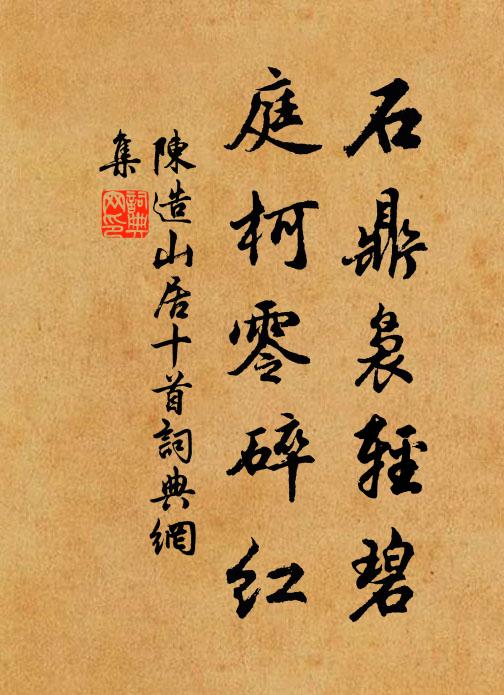 石鼎裊輕碧
庭柯零碎紅
陳造山居十首詞典網
集
詞典
网印